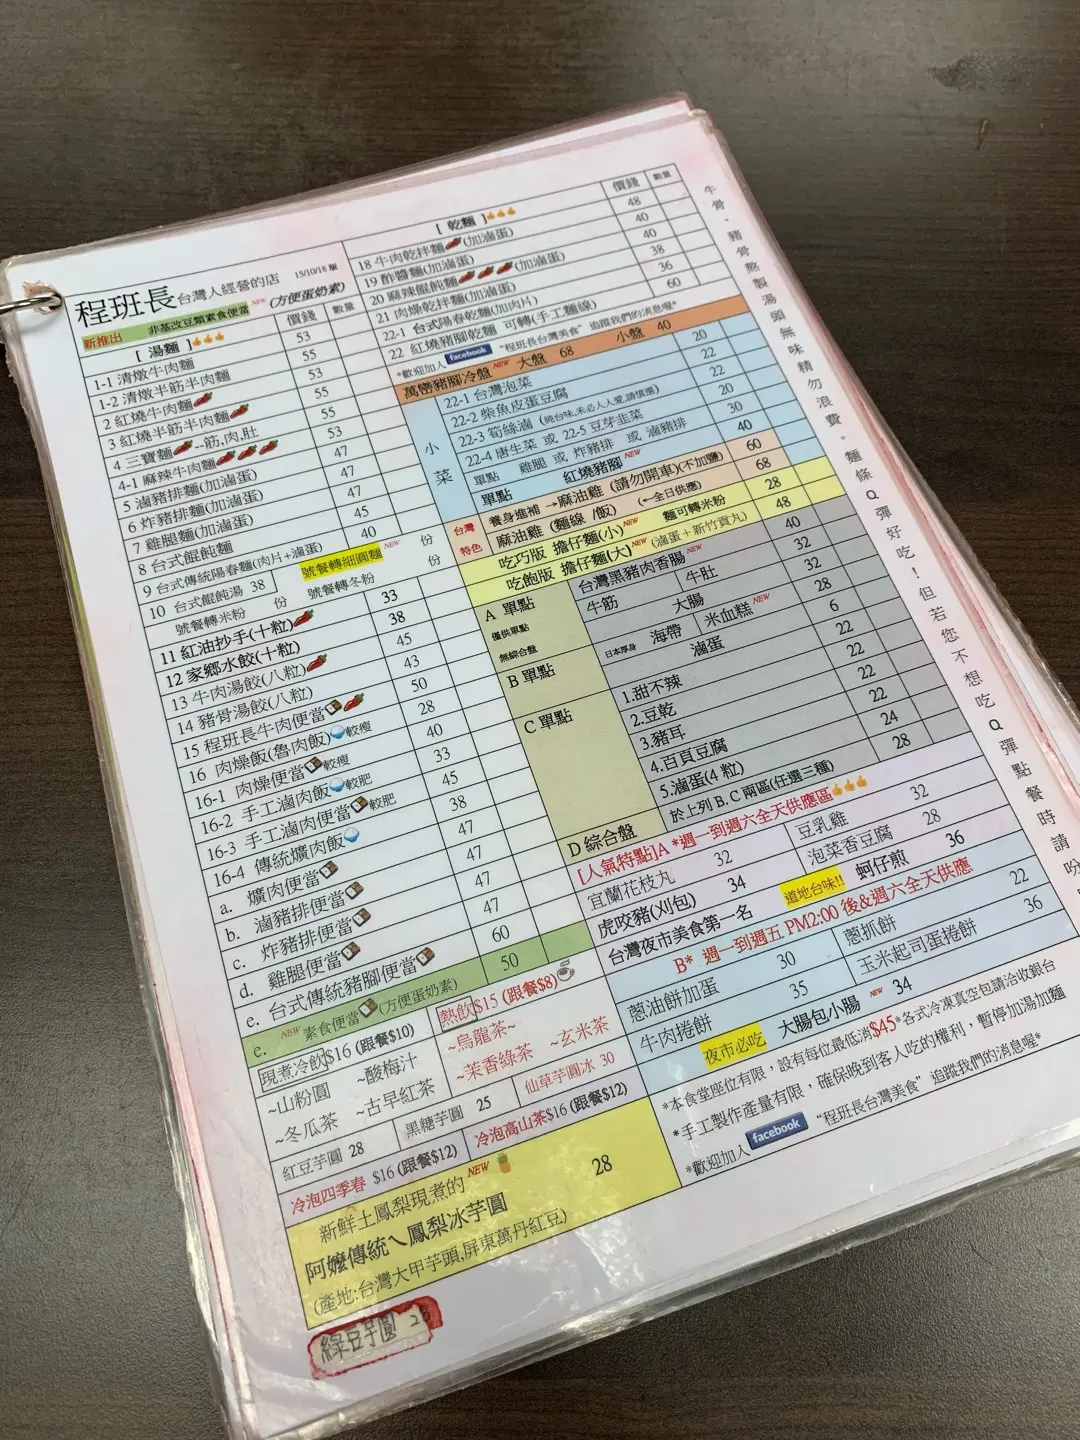 程班長台灣人經營的店 15/10/18 版
新推出 非基改豆類素食便當 NEW (方便蛋奶素)
[ 湯麵 ] 價錢 數量
1-1 清燉牛肉麵 53
1-2 清燉半筋半肉麵 55
2 紅燒牛肉麵 53
3 紅燒半筋半肉麵 55
4 三寶麵 -筋.肉.肚 55
4-1 麻辣牛肉麵 53
5 滷豬排麵(加滷蛋) 47
6 炸豬排麵(加滷蛋) 47
7 雞腿麵(加滷蛋) 47
8 台式餛飩麵 45
9 台式傳統陽春麵(肉片+滷蛋) 40
10 台式餛飩湯 38 號餐轉細圓麵 NEW 份
號餐轉米粉 份 號餐轉冬粉 份
11 紅油抄手(十粒) 33
12 家鄉水餃(十粒) 38
13 牛肉湯餃(八粒) 45
14 豬骨湯餃(八粒) 43
15 程班長牛肉便當 50
16 肉燥飯(魯肉飯) 較瘦 28
16-1 肉燥便當 較瘦 40
16-2 手工滷肉飯 較肥 33
16-3 手工滷肉便當 較肥 45
16-4 傳統爌肉飯 38
a. 爌肉便當 47
b. 滷豬排便當 47
c. 炸豬排便當 47
d. 雞腿便當 47
e. 台式傳統豬腳便當 60
e. NEW 素食便當 (方便蛋奶素) 50
現煮冷飲$16 (跟餐$10)
~山粉圓 ~酸梅汁
~冬瓜茶 ~古早紅茶
熱飲$15 (跟餐$8)
~烏龍茶~
~茉香綠茶 ~玄米茶
紅豆芋圓 28 黑糖芋圓 25 仙草芋圓冰 30
冷泡四季春 $16 (跟餐$12) 冷泡高山茶$16 (跟餐$12)
新鮮土鳳梨現煮的 NEW
阿嬤傳統ㄟ鳳梨冰芋圓 28
(產地:台灣大甲芋頭,屏東萬丹紅豆)
綠豆芋圓 28
[ 乾麵 ] 價錢 數量
18 牛肉乾拌麵 (加滷蛋) 48
19 酢醬麵(加滷蛋) 40
20 麻辣餛飩麵 (加滷蛋) 40
21 肉燥乾拌麵(加滷蛋) 38
22-1 台式陽春乾麵(加肉片) 36
22 紅燒豬腳乾麵 可轉(手工麵線) 60
*歡迎加入 facebook “程班長台灣美食” 追蹤我們的消息喔*
萬巒豬腳冷盤 NEW 大盤 68 小盤 40
小菜
22-1 台灣泡菜 20
22-2 柴魚皮蛋豆腐 22
22-3 筍絲滷 (純台味,未必人人愛,請慎選) 22
22-4 唐生菜 或 22-5 豆芽韭菜 20
單點 雞腿 或 炸豬排 或 滷豬排 30
單點 紅燒豬腳 NEW 40
台灣特色
養身進補→麻油雞 (請勿開車)(不加鹽) 60
麻油雞 (麵線 /飯) (←全日供應) 68
吃巧版 擔仔麵(小) NEW 麵可轉米粉 28
吃飽版 擔仔麵(大) NEW (滷蛋+新竹貢丸) 48
A 單點 台灣黑豬肉香腸 NEW 40
僅供單點 牛筋 牛肚 32
無綜合盤 大腸 32
B 單點 日本厚身 海帶 米血糕 NEW 28
滷蛋 6
C 單點 1.甜不辣 22
2.豆乾 22
3.豬耳 22
4.百頁豆腐 22
5.滷蛋(4 粒) 24
D 綜合盤 於上列 B. C 兩區(任選三種) 28
[人氣特點]A *週一到週六全天供應區
宜蘭花枝丸 32 豆乳雞 32
虎咬豬(刈包) 34 泡菜香豆腐 28
台灣夜市美食第一名 道地台味!! 蚵仔煎 36
B* 週一到週五 PM2:00 後&週六全天供應
蔥油餅加蛋 30 蔥抓餅 22
牛肉捲餅 35 玉米起司蛋捲餅 36
夜市必吃 大腸包小腸 NEW 34
*本食堂座位有限，設有每位最低消$45*各式冷凍真空包請洽收銀台
*手工製作產量有限，確保晚到客人吃的權利，暫停加湯加麵
*歡迎加入 facebook “程班長台灣美食” 追蹤我們的消息喔*
牛骨、豬骨熬製湯頭無味精勿浪費。麵條Q彈好吃！但若您不想吃Q彈點餐時請吩